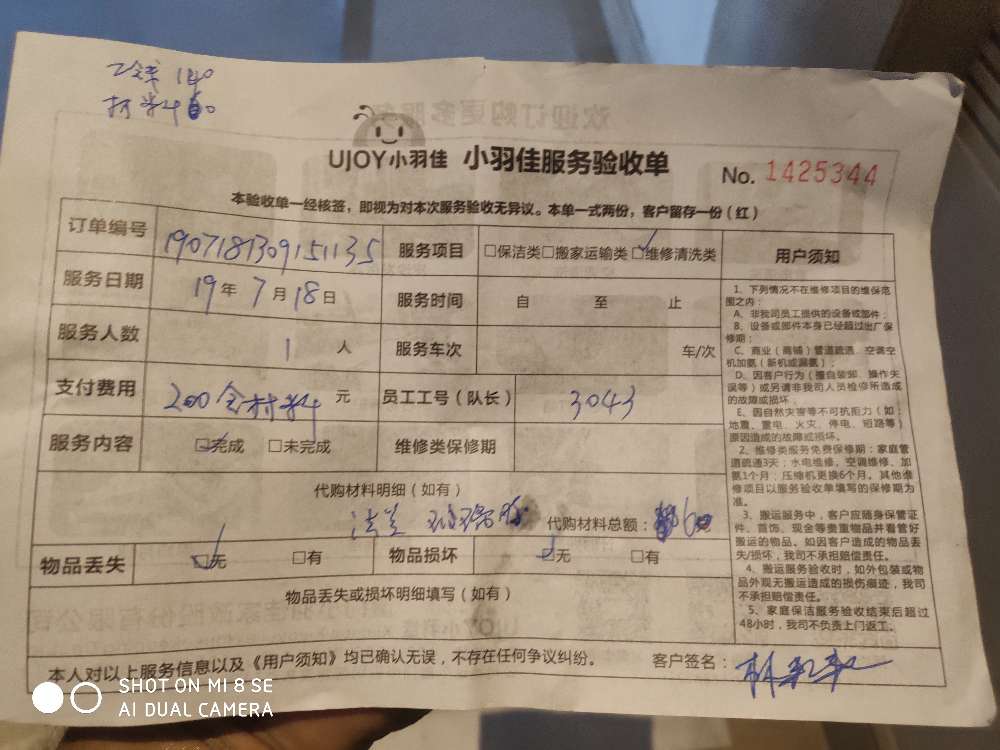 工钱 140
材料 60
UJOY小羽佳 小羽佳服务验收单
No. 1425344
本验收单一经核签，即视为对本次服务验收无异议。本单一式两份，客户留存一份（红）
订单编号 1907181309151135 服务项目 □保洁类□搬家运输类□维修清洗类
服务日期 19年7月18日 服务时间 自 至 止
服务人数 1人 服务车次 车/次
支付费用 200含材料 元 员工工号（队长） 3043
服务内容 □完成 □未完成 维修类保修期
代购材料明细（如有）
法兰 玻璃胶 代购材料总额：60元
物品丢失 □无 □有 物品损坏 □无 □有
物品丢失或损坏明细填写（如有）
本人对以上服务信息以及《用户须知》均已确认无误，不存在任何争议纠纷。 客户签名：
用户须知
1、下列情况不在维修项目的维保范
围之内：
A、非我司员工提供的设备或部件；
B、设备或部件本身已经超过出厂保
修期；
C、商业（商铺）管道疏通、空调空
机加氨（新机或漏氨）
D、因客户行为（擅自装卸、操作失
误等）或另请非我司人员检修所造成
的故障或损坏。
E、因自然灾害等不可抗拒力（如：
地震、雷电、火灾、停电、短路等）
原因造成的故障或损坏。
2、维修类服务免费保修期：家庭管
道疏通3天；水电维修、空调维修、加
氨1个月；压缩机更换6个月。其他维
修项目以服务验收单填写的保修期为
准。
3、搬运服务中，客户应随身保管证
件、首饰、现金等贵重物品并看管好
搬运的物品。如因客户造成的物品丢
失/损坏，我司不承担赔偿责任。
4、搬运服务验收时，如外包装或物
品外观无搬运造成的损伤痕迹，我司
不承担赔偿责任。
5、家庭保洁服务验收结束后超过
48小时，我司不负责上门返工。
SHOT ON MI 8 SE
AI DUAL CAMERA